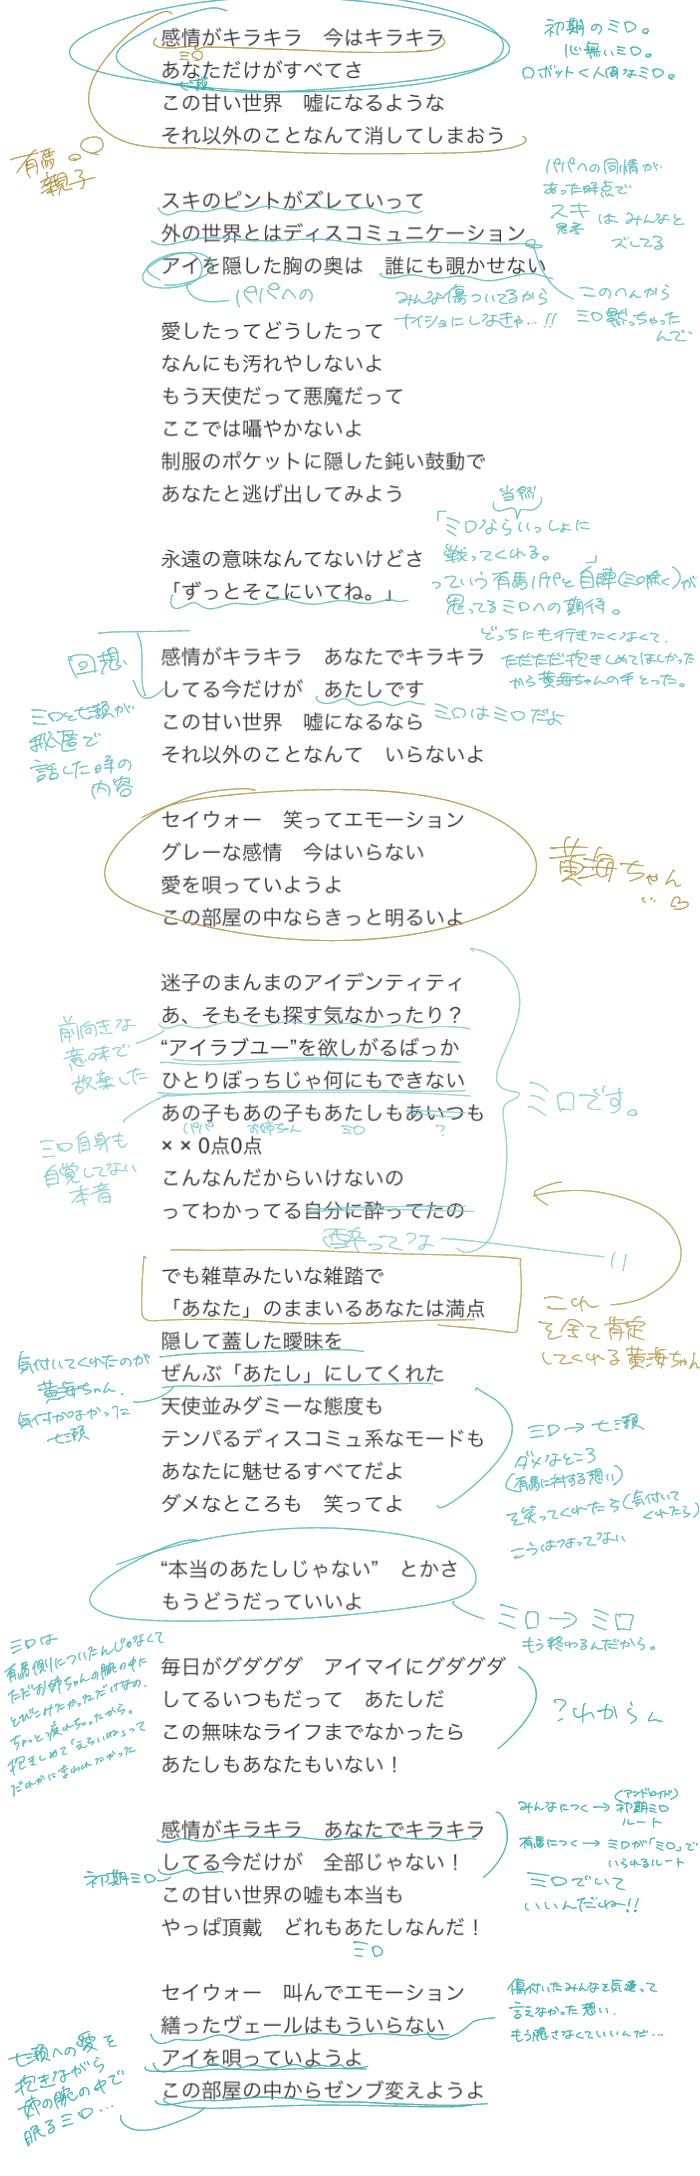 感情がキラキラ　今はキラキラ
ミロ
あなただけがすべてさ
この甘い世界　嘘になるような
それ以外のことなんて消してしまおう
初期のミロ。
心無いミロ。
ロボット<人間なミロ。
有馬
親子
スキのピントがズレていって
外の世界とはディスコミュニケーション
アイを隠した胸の奥は　誰にも覗かせない
パパへの同情が
あった時点で
スキ
はみんなと
ズレてる
パパへの
みんな傷ついてるから
ナイショにしなきゃ…!!
このへんから
ミロ黙っちゃった
んで
愛したってどうしたって
なんにも汚れやしないよ
もう天使だって悪魔だって
ここでは囁やかないよ
制服のポケットに隠した鈍い鼓動で
あなたと逃げ出してみよう
永遠の意味なんてないけどさ
「ずっとそこにいてね。」
当然
「ミロならいっしょに
戦ってくれる。」
っていう有馬パパと自陣(ミロ除く)が
思ってるミロへの期待。
どっちにも行きたくなくて、
ただただ抱きしめてほしかった
から黄海ちゃんの手とった。
回想
ミロと七瀬が
秘密で
話した時の
内容
感情がキラキラ　あなたでキラキラ
してる今だけが　あたしです
この甘い世界　嘘になるなら
それ以外のことなんて　いらないよ
ミロはミロだよ
セイウォー　笑ってエモーション
グレーな感情　今はいらない
愛を唄っていようよ
この部屋の中ならきっと明るいよ
黄海ちゃん
迷子のまんまのアイデンティティ
あ、そもそも探す気なかったり？
“アイラブユー”を欲しがるばっか
ひとりぼっちじゃ何にもできない
あの子もあの子もあたしもあいつも
パパ　お姉ちゃん　ミロ　?
× × 0点0点
こんなんだからいけないの
ってわかってる自分に酔ってたの
酔ってな
前向きな
意味で
放棄した
ミロ自身も
自覚してない
本音
ミロです。
でも雑草みたいな雑踏で
「あなた」のままいるあなたは満点
隠して蓋した曖昧を
ぜんぶ「あたし」にしてくれた
天使並みダミーな態度も
テンパるディスコミュ系なモードも
あなたに魅せるすべてだよ
ダメなところも　笑ってよ
これ
を全て肯定
してくれる黄海ちゃん
気付いてくれたのが
黄海ちゃん.
気付かなかった
七瀬
ミロ→七瀬
ダメなところ
(有馬に対する想い)
を笑ってくれたら(気付いて
くれたら)
こうはなってない
“本当のあたしじゃない”　とかさ
もうどうだっていいよ
ミロ→ミロ
もう終わるんだから。
毎日がグダグダ　アイマイにグダグダ
してるいつもだって　あたしだ
この無味なライフまでなかったら
あたしもあなたもいない！
ミロは
有馬側についたんじゃなくて
ただお姉ちゃんの腕の中に
とびこみたかっただけなの.
ちょっと疲れちゃったから。
抱きしめて「えらいね」って
だれかに言われたかった
?わからん
感情がキラキラ　あなたでキラキラ
してる今だけが　全部じゃない！
この甘い世界の嘘も本当も
やっぱ頂戴　どれもあたしなんだ！
ミロ
初期ミロ
(アンドロイド)
みんなにつく→初期ミロ
ルート
有馬につく→ミロが「ミロ」で
いられるルート
ミロでいて
いいんだね!!
セイウォー　叫んでエモーション
繕ったヴェールはもういらない
アイを唄っていようよ
この部屋の中からゼンブ変えようよ
傷付いたみんなを気遣って
言えなかった想い.
もう隠さなくていいんだ…
七瀬への愛を
抱きながら
姉の腕の中で
眠るミロ…